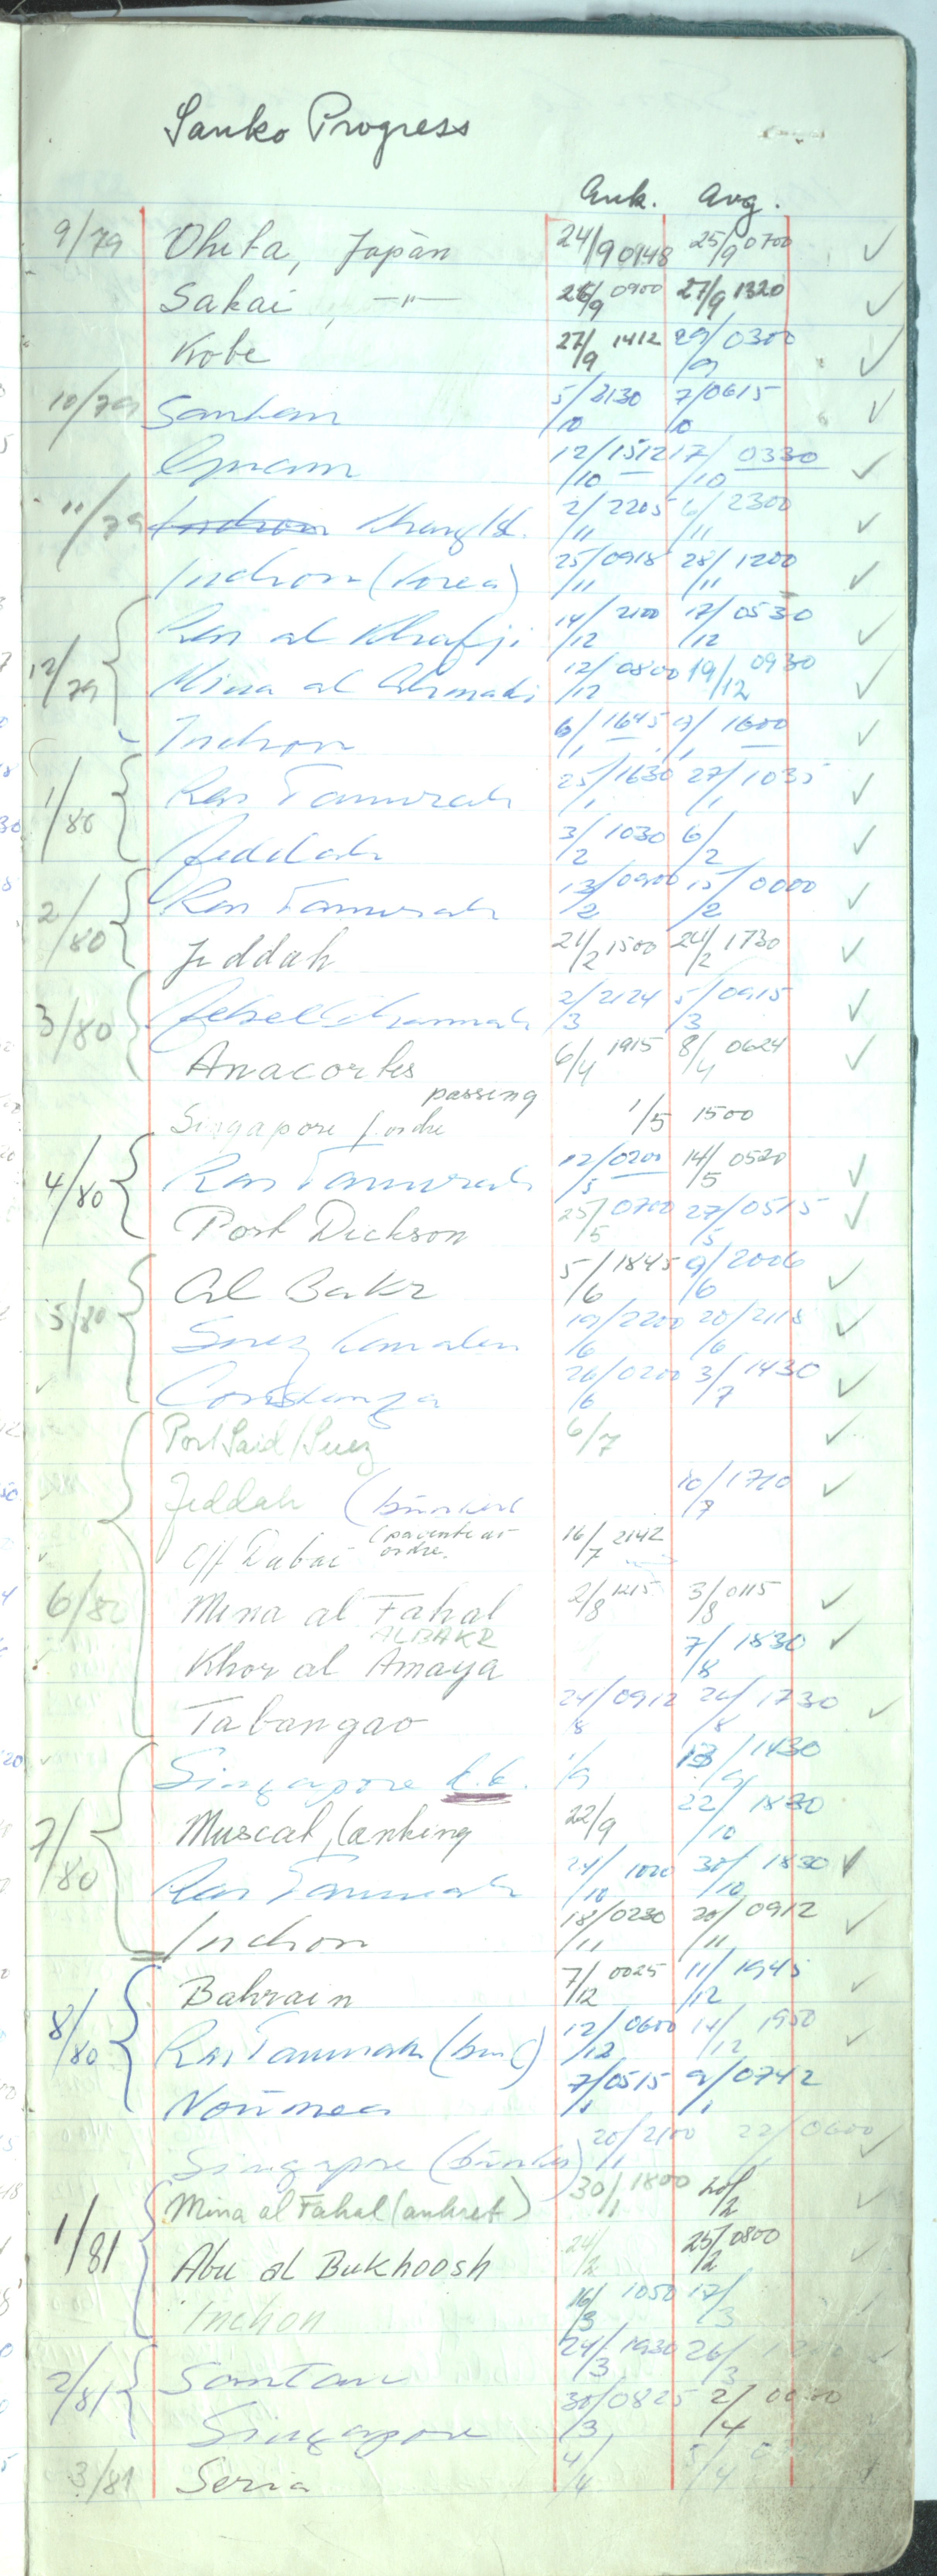 Sanko Progress
Ank. Avg.
9/79 Ohita, Japan 24/9 0948 25/9 0700 ✓
Sakai, —"— 26/9 0900 27/9 1320 ✓
Kobe 27/9 1412 29/9 0300 ✓
10/79 Santan 5/10 2130 7/10 0615 ✓
12/10 1512 17/10 0330 ✓
11/79 2/11 2205 6/11 2300 ✓
Inchon (Korea) 25/11 0918 28/11 1200 ✓
12/79 Ras al Khafji 14/12 2100 17/12 0530 ✓
Mina al Ahmadi 12/12 0800 19/12 0930 ✓
Inchon 6/1 1645 9/1 1600 ✓
1/80 Ras Tanurah 25/1 1630 27/1 1035 ✓
Jeddah 3/2 1030 6/2 ✓
2/80 Ras Tanurah 13/2 0900 15/2 0000 ✓
Jeddah 21/2 1500 24/2 1730 ✓
3/80 Jebel Dhannah 2/3 2124 5/3 0915 ✓
Anacortes 6/4 1915 8/4 0624 ✓
passing
Singapore f. ordre 1/5 1500
4/80 Ras Tanurah 12/5 0200 14/5 0520 ✓
Port Dickson 25/5 0700 27/5 0515 ✓
5/80 Al Bakr 5/6 1845 9/6 2006 ✓
Suez kanalen 19/6 2200 20/6 2118 ✓
Constanza 26/6 0200 3/7 1430 ✓
Port Said/Suez 6/7 ✓
Jeddah (bunkers 10/7 1710 ✓
Off Dubai ordre. 16/7 2142
6/80 Mina al Fahal 2/8 1215 3/8 0115 ✓
ALBAKR 7/8 1830 ✓
Khor al Amaya
Tabangao 24/8 0912 26/8 1730 ✓
Singapore 1/9 13/9 1430
7/80 Muscat, (anking 22/9 22/10 1830
Ras Tanurah 24/10 1020 30/10 1830 ✓
Inchon 18/11 0230 20/11 0912 ✓
Bahrain 7/12 0025 11/12 1945 ✓
8/80 Ras Tanurah 12/12 0600 14/12 1950 ✓
Noumea 7/1 0515 9/1 0742
Singapore (bunkers) 20/1 2100 22/ 0600 ✓
Mina al Fahal (ankret) 30/1 1800 20/2 ✓
1/81 Abu al Bukhoosh 24/2 25/2 0800 ✓
Inchon 16/3 1050 17/3
2/81 Santan 24/3 1930 26/3
Singapore 30/3 0825 2/4
3/81 Seria 4/4 5/4